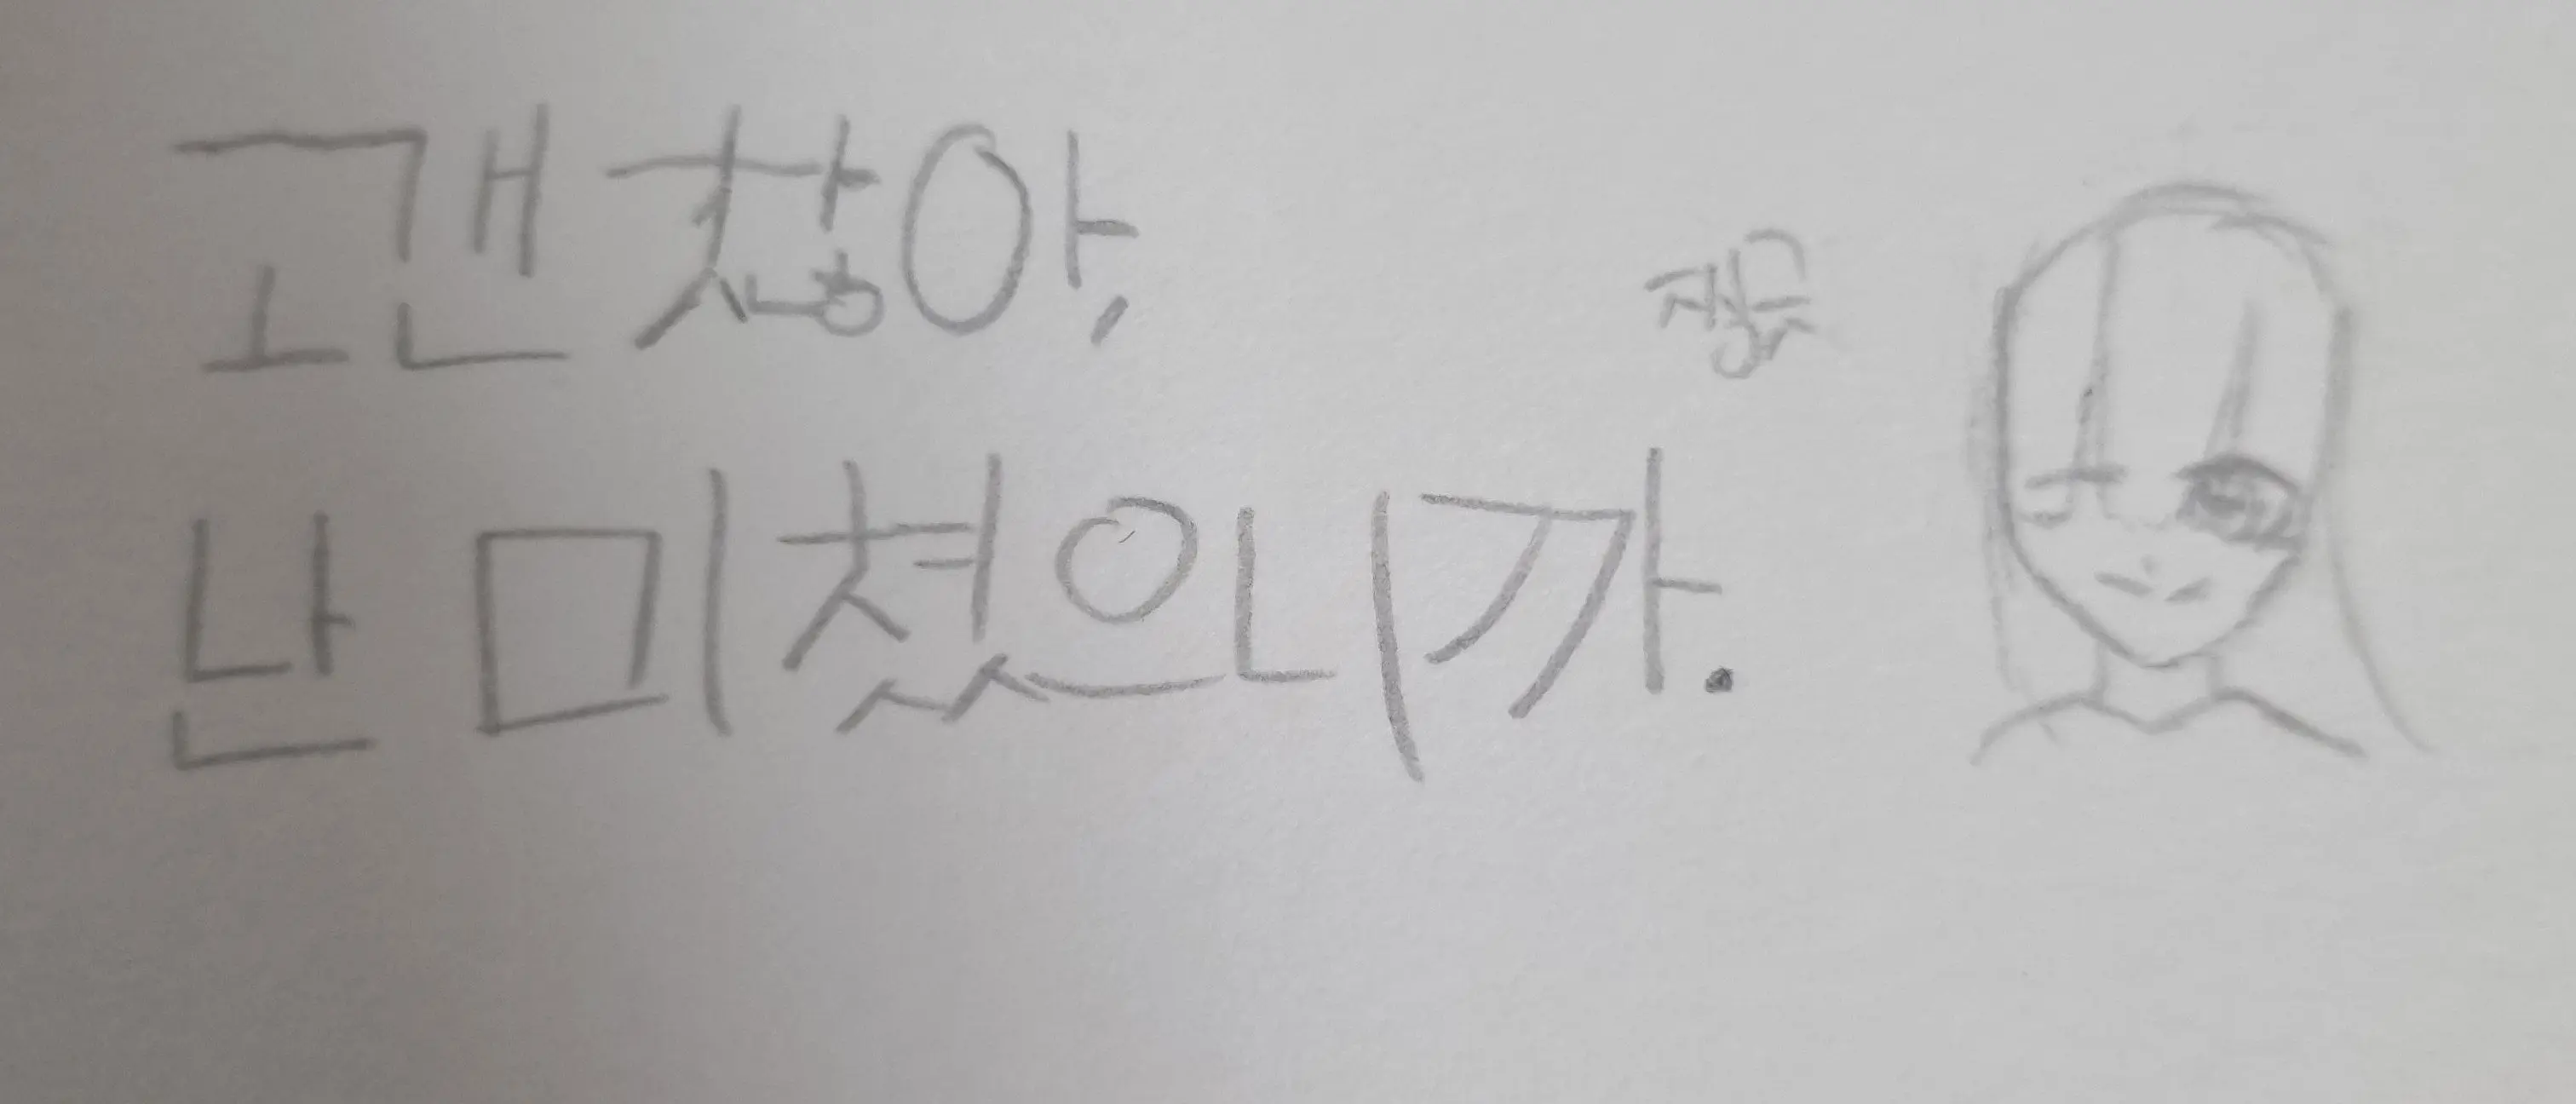 괜찮아,
난 미쳤으니까.